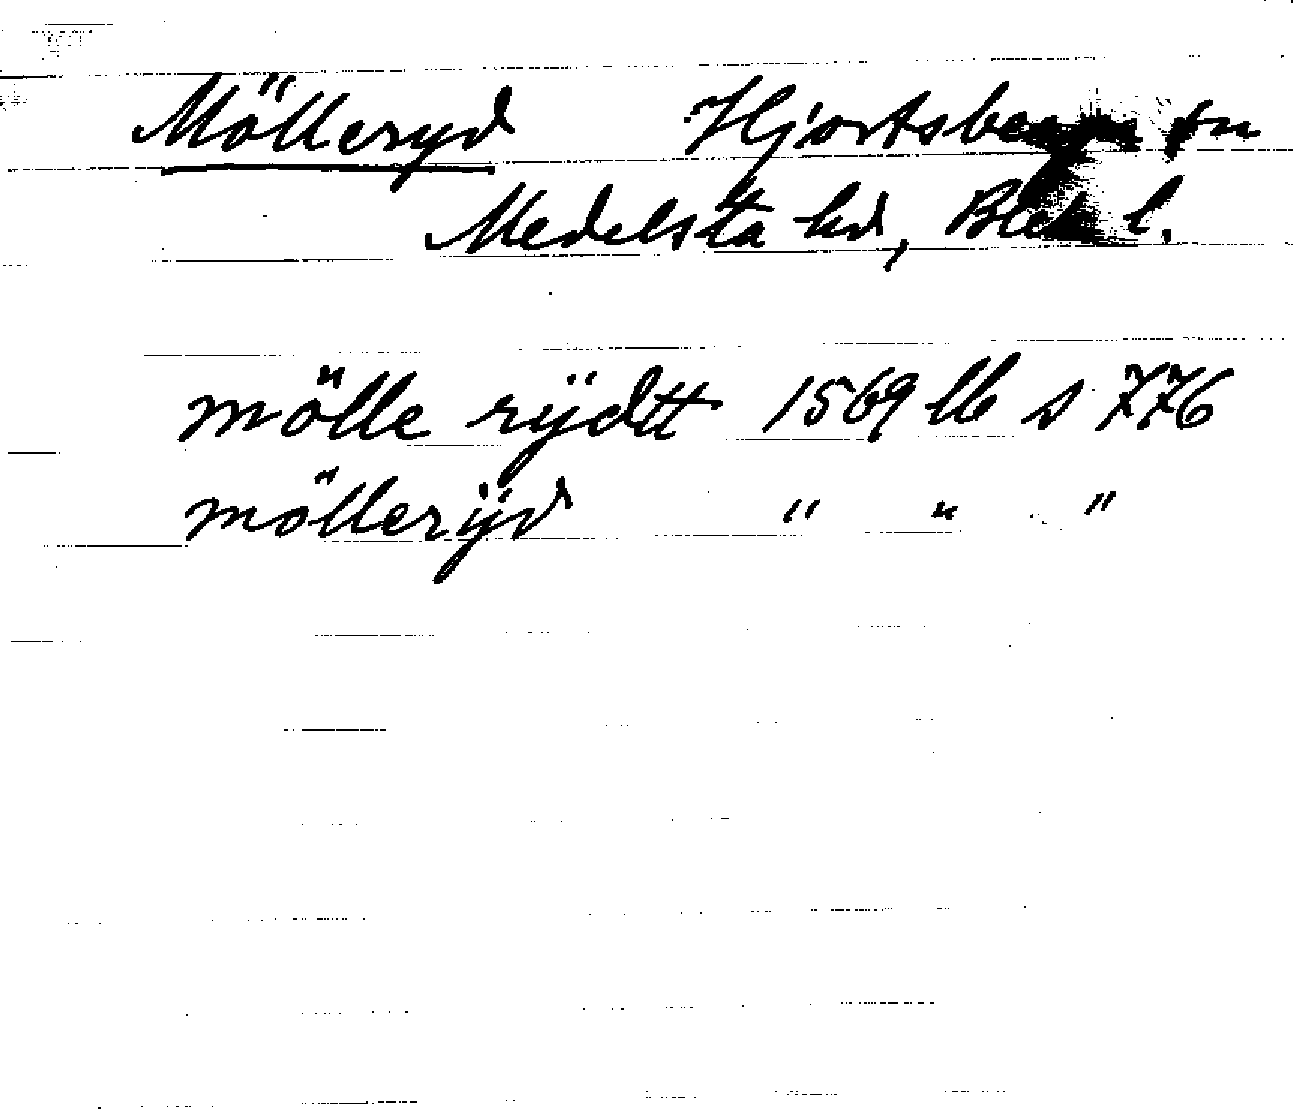 Mölleryd Hjortsberga sn
Medelsta hd, Blek l.
mölle rÿdtt 1569 lb s 776
mölle​rÿd " " "